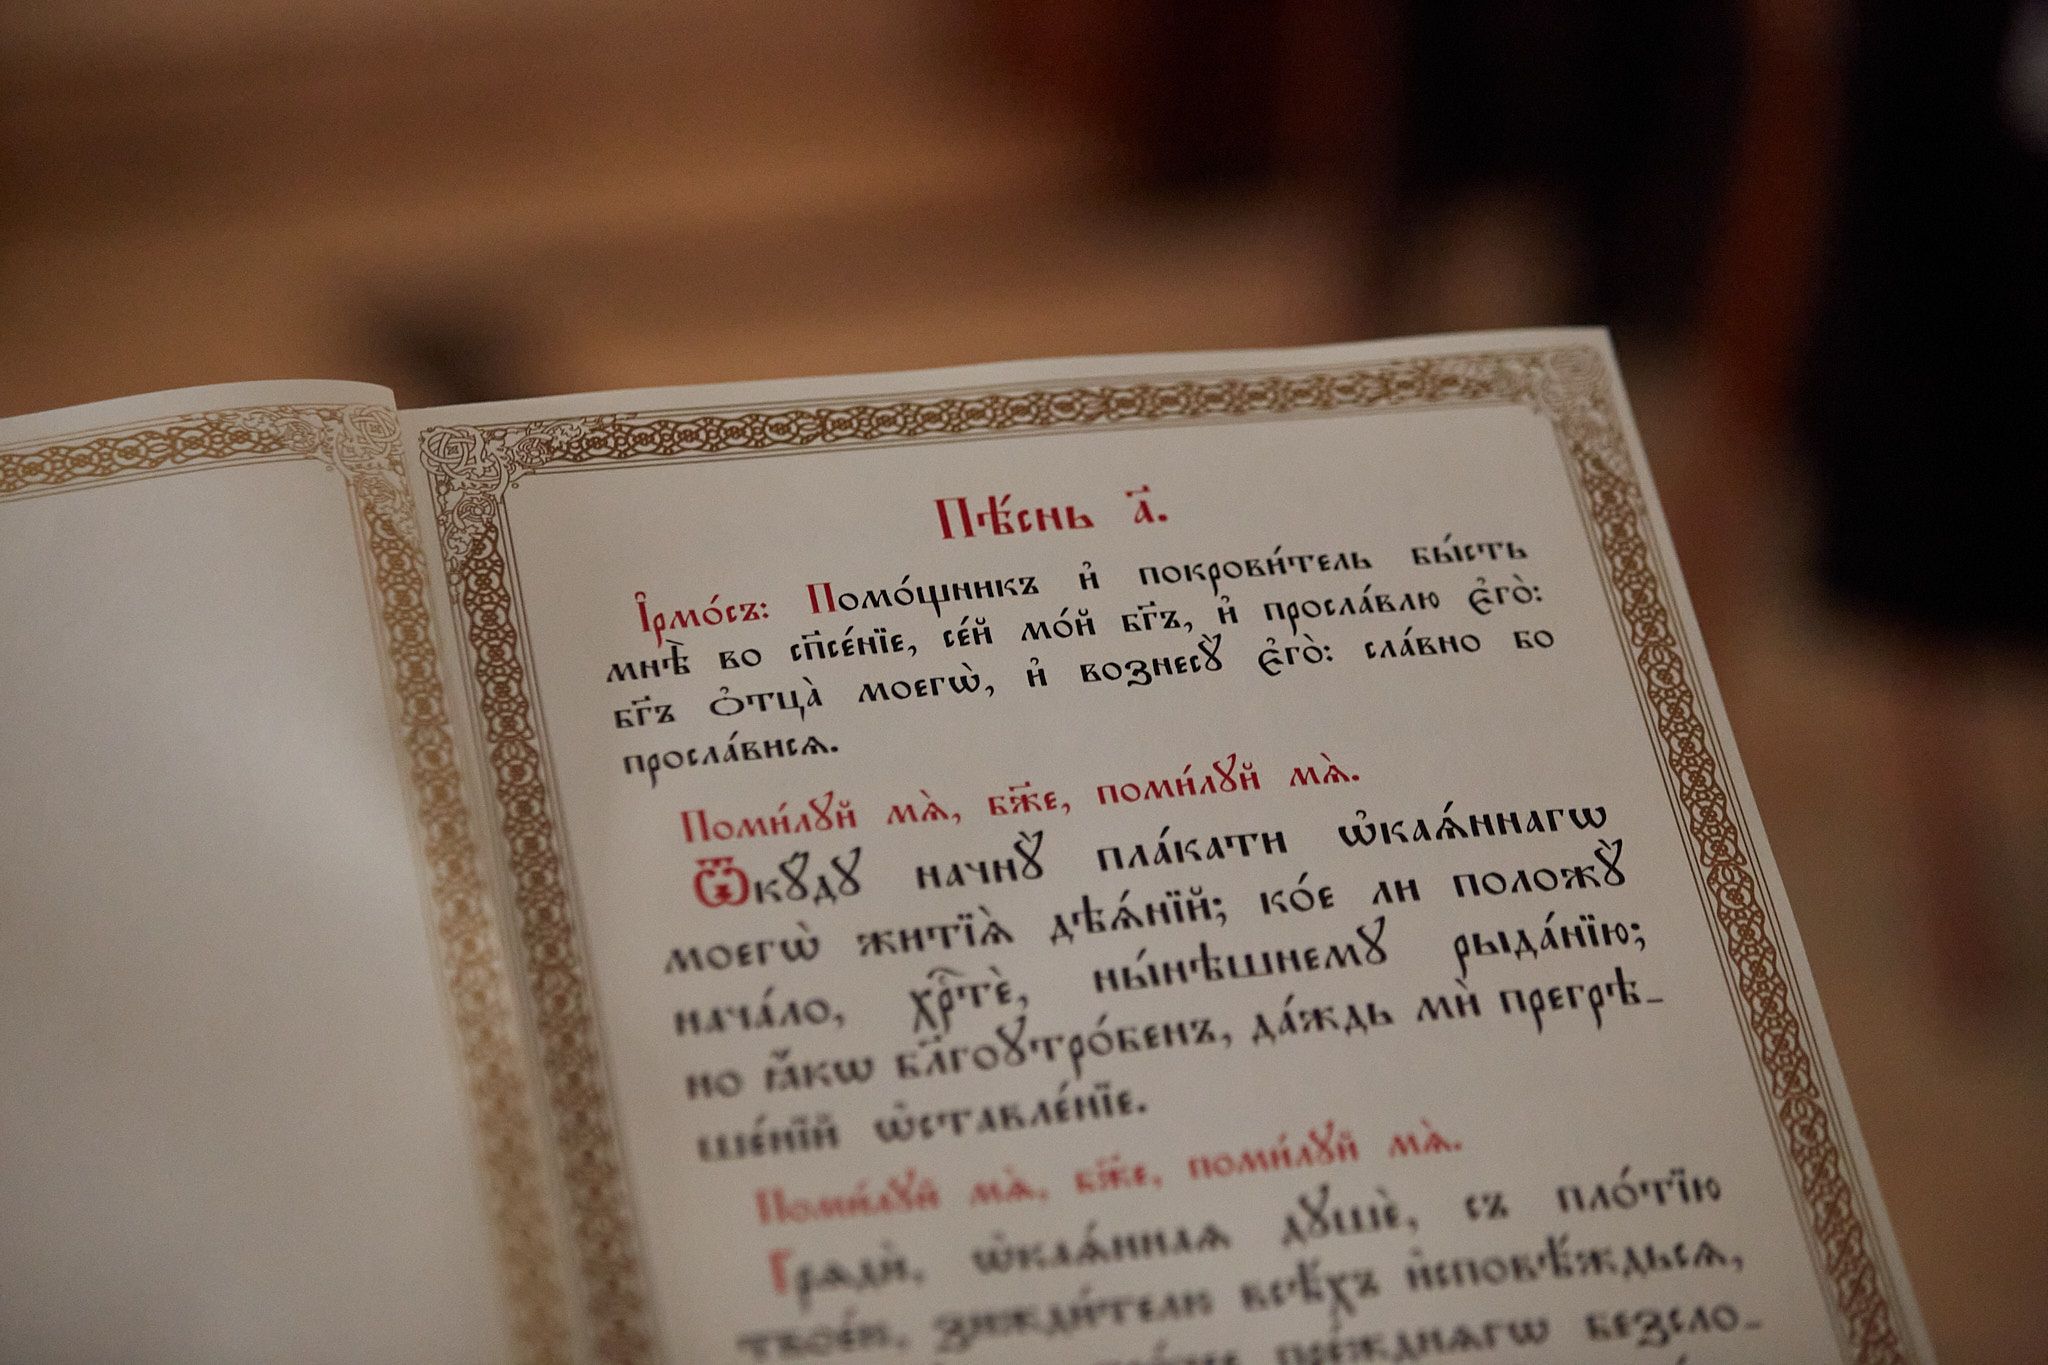 Пѣ́снь а҃.
І҆рмо́съ: Помо́щникъ и҆ покрови́тель бы́сть
мнѣ̀ во сп҃се́нїе, се́й мо́й бг҃ъ, и҆ просла́влю є҆го̀:
бг҃ъ ѻ҆тца̀ моегѡ̀, и҆ вознесꙋ̀ є҆го̀: сла́вно бо
просла́висѧ.
Поми́лꙋй мѧ̀, бж҃е, поми́лꙋй мѧ̀.
Ѿкꙋ́дꙋ начнꙋ̀ пла́кати ѡ҆каѧ́ннагѡ
моегѡ̀ житїѧ̀ дѣѧ́нїй; ко́е ли положꙋ̀
нача́ло, хрⷭ҇тѐ, ны́нѣшнемꙋ рыда́нїю;
но ꙗ҆́кѡ бл҃гоꙋтро́бенъ, да́ждь мѝ прегрѣ_
ше́нїй ѡ҆ставле́нїе.
Поми́лꙋй мѧ̀, бж҃е, поми́лꙋй мѧ̀.
Грѧдѝ, ѡ҆каѧ́ннаѧ дꙋшѐ, съ пло́тїю
твое́ю, зижди́телю всѣ́хъ и҆сповѣ́ждьсѧ,
пре́жднѧгѡ безсло_